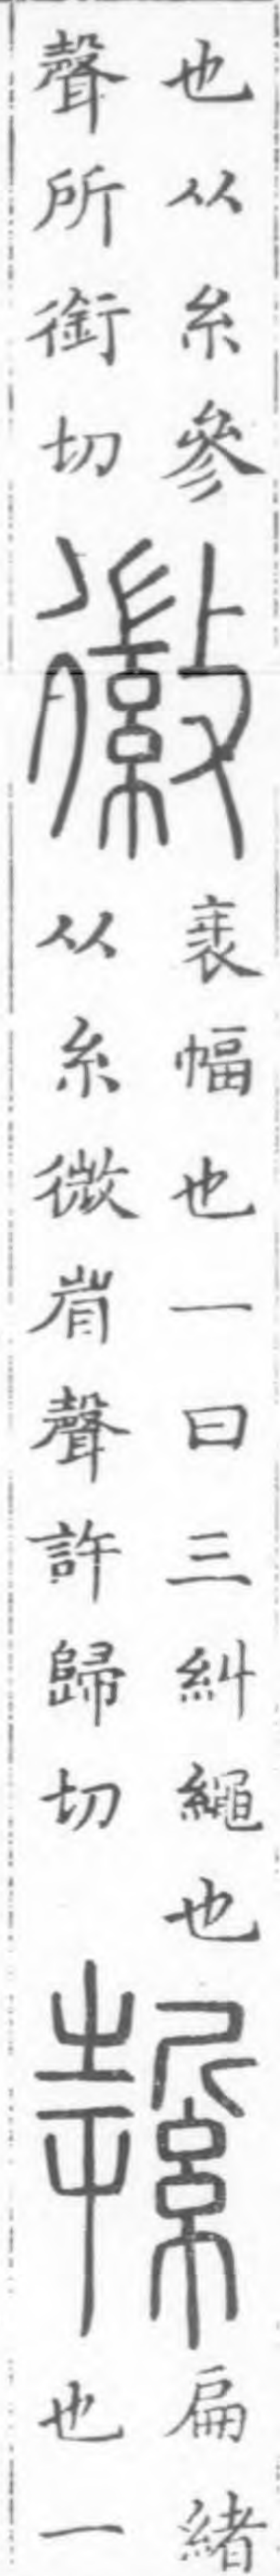 也从糸參
聲所銜切
徽
衺幅也一曰三糾繩也
从糸微省聲許歸切
䋢
扁緒
也一